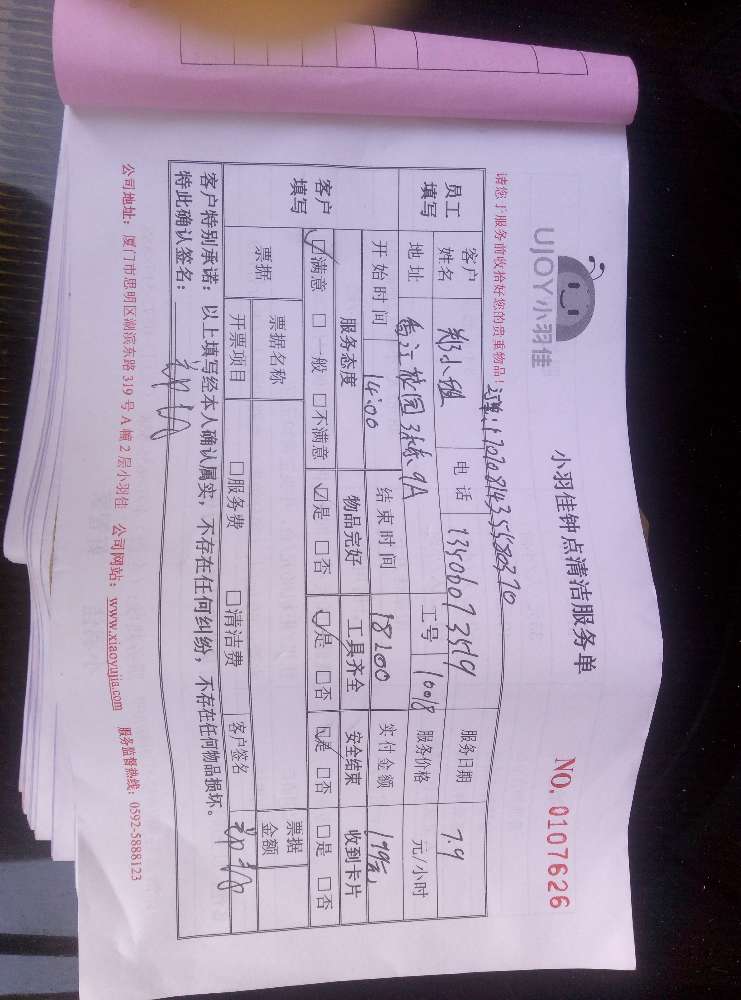 UJOY小羽佳
小羽佳钟点清洁服务单
NO. 0107626
请您于服务前收拾好您的贵重物品!
员工填写
客户姓名 郑小姐 电话 13506073519 服务日期 7.9
地址 香江花园3栋9A 工号 10018 服务价格 元/小时
开始时间 14:00 结束时间 18:00 实付金额 199元
客户填写
服务态度 物品完好 工具齐全 安全结束 收到卡片
☑满意 □一般 □不满意 ☑是 □否 ☑是 □否 ☑是 □否 □是 □否
票据 票据名称 票据金额
开票项目 □服务费 □清洁费 客户签名
客户特别承诺:以上填写经本人确认属实,不存在任何纠纷,不存在任何物品损坏。
特此确认签名:
公司地址:厦门市思明区湖滨东路319号A幢2层小羽佳 公司网站:www.xiaoyujia.com 服务监督热线:0592-5888123